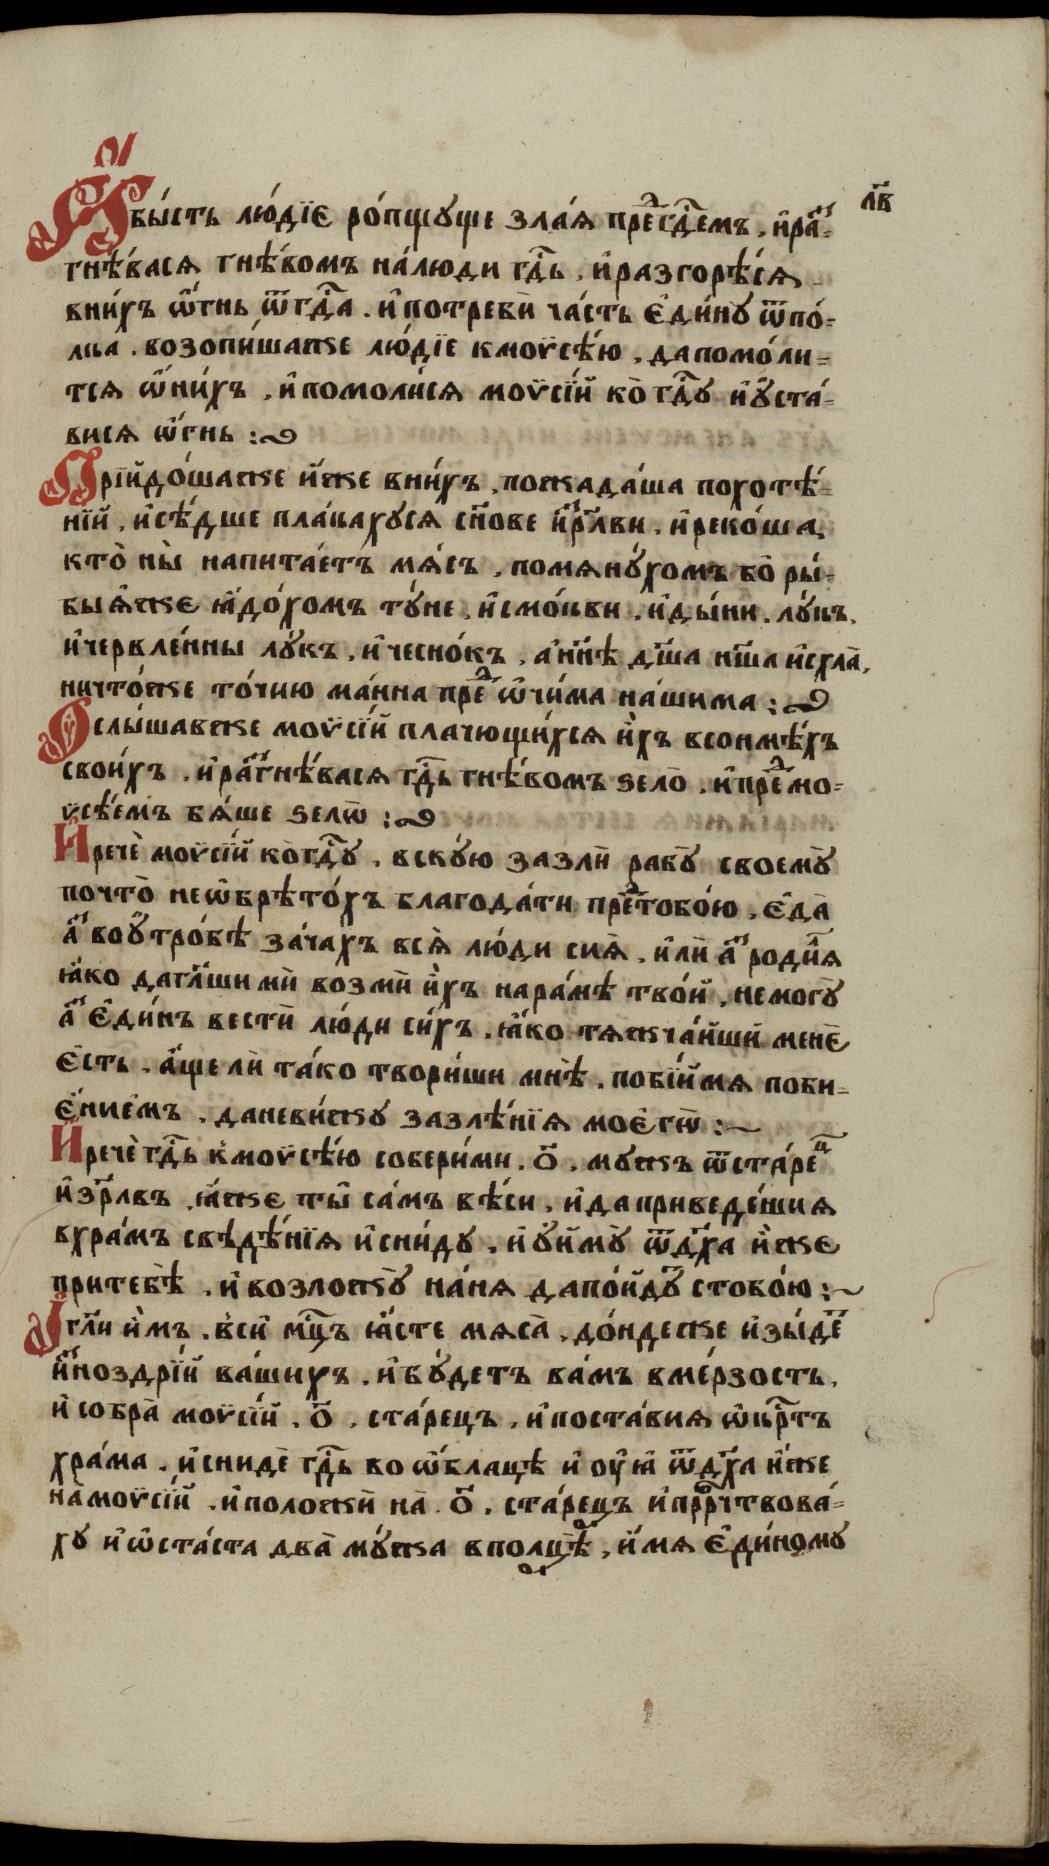 л҃в
аі
И҆бы́сть лю́дїє ро́пщуще зла́я пре́дгд҇емъ . и҆ра́з-
гнѣ́вася гнѣ́вомъ на́люди гд҇ь . и҆разгорѣ́ся
вни́хъ ѡ҆́гнь ѿгд҇а . и҆потребѝ ча́сть є҆ди́нꙋ ѿпо́-
лка . возопи́шаже лю́дїе кмоѵсѣ́ю , дапомо́ли-
тся ѡ҆ни́хъ , и҆помоли́ся моѵсі́й ко̀ гд҇ꙋ и҆ꙋста́-
вися ѡ҆́гнь :
Прїйдо́шаже и҆́же вни́хъ , пожада́ша похотѣ́-
нїй , и҆сѣ́дше пла́кахуся сн҃ове и҆зр҃лви . и҆реко́ша ,
кто̀ ны̀ напита́етъ мя́съ , помянꙋ́хомъ бо̀ ры́-
бы я҆́же ꙗ҆до́хомъ тꙋ́не , и҆смо́кви . и҆ды́ни . лꙋ́къ ,
и҆червле́нны лꙋ́къ , и҆ чесно́къ , а҆нн҃ѣ дш҃а нш҃а и҆схла̀ ,
ничто́же то́чїю ма́нна пред ѡ҆чи́ма на́шима :
Ослы́шавже моѵсі́й плачющи́хся и҆́хъ всонмѣ́хъ
свои́хъ . и҆разгнѣ́вася гд҇ь гнѣ́вомъ ѕело̀ . и҆предмо-
ѵсѣ́емъ бя́ше ѕелѡ̀ :
И҆речѐ моѵсі́й ко̀гд҇ꙋ . вскꙋ́ю зазлѝ рабꙋ̀ своемꙋ̀
почто̀ неѡ҆брѣто́хъ благода́ти предтобо́ю , є҆да̀
а҆з воꙋ҆тро́бѣ зача́хъ вся̀ лю́ди сия̀ . и҆лѝ а҆з роди́я
ꙗ҆́ко даглаши мѝ возмѝ и҆́хъ нара́мѣ тво́й , немогꙋ̀
а҆з є҆ди́нъ вестѝ лю́ди си́хъ . ꙗ҆́ко тяжча́йши менѐ
є҆́сть . а҆́ще лѝ та́ко твори́ши мнѣ̀ . побі́ймя поби-
є́ниемъ . даневи́жꙋ зазлѣ́нїя моєгѡ̀ :
И҆речѐ гд҇ь к҆моѵсѣ́ю собери́ми . о҃ . мꙋжъ ѿста́рец
и҆зр҃лвъ . ꙗ҆́же ты̀ са́мъ вѣ́си , и҆да приведе́шия
вхра́мъ свѣдѣ́нїя и҆сни́дꙋ . и҆ ꙋ҆ймꙋ̀ ѿдх҃а и҆́же
притебѣ̀ . и҆ возложꙋ̀ на́ня дапо́йдꙋт стобо́ю :
И҆гл҃и и҆́мъ . в҆сѝ мц҇ъ ꙗ҆́сте мяса̀ , до́ндеже и҆зы́де
и҆зноздрі́й ва́шихъ . и҆бꙋ́детъ ва́мъ вме́рзость ,
и҆ собра̀ моѵсі́й . о҃ . ста́рецъ , и҆поста́вия ѡ҆крⷭ҇тъ
хра́ма . и҆снидѐ гд҇ь во ѡ҆́блацѣ и҆ оуꙗ҆̀ ѿдх҃а и҆́же
на̀моѵсі́й . и҆положѝ на̀ . о҃ . ста́рецъ и҆пррⷪ҇чтвова́-
хꙋ и҆ѡ҆ста́ста два̀ мꙋ́жа вполцѣ̀ , и҆́мя є҆ди́номꙋ